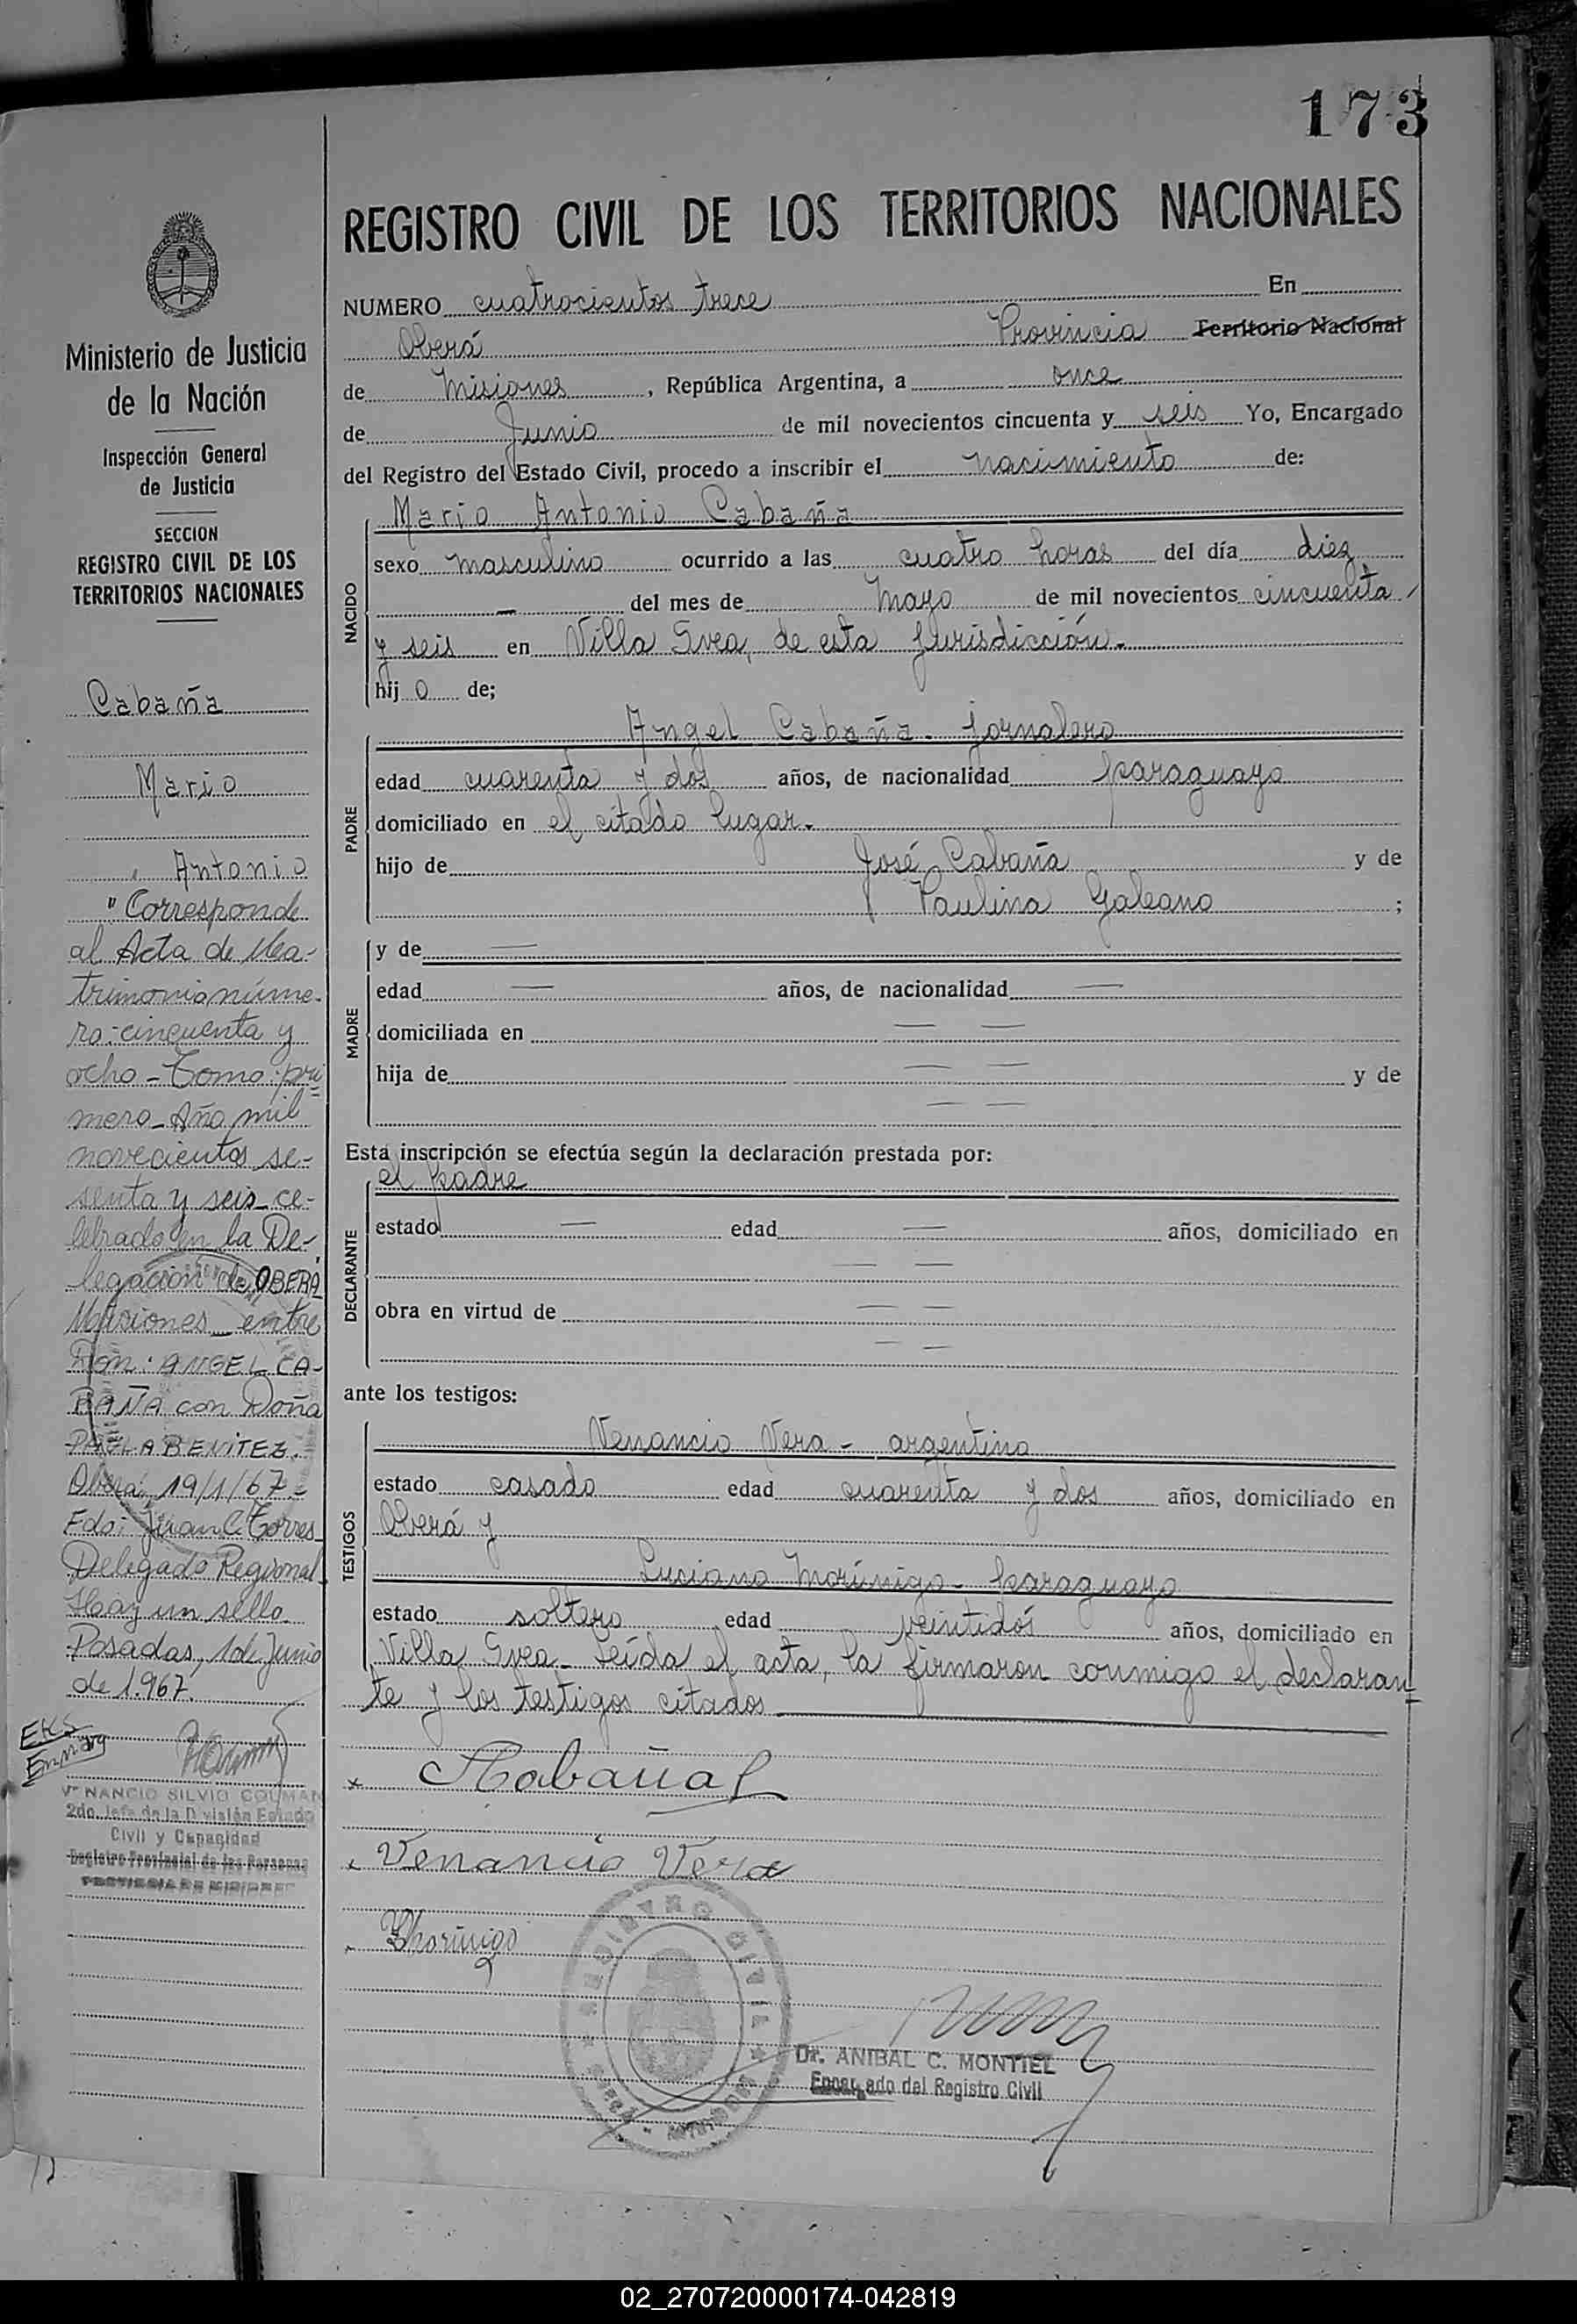 173
REGISTRO CIVIL DE LOS TERRITORIOS NACIONALES
NUMERO cuatrocientos trece En
Oberá Provincia Territorio Nacional
de Misiones, República Argentina, a once
de Junio de mil novecientos cincuenta y seis Yo, Encargado
del Registro del Estado Civil, procedo a inscribir el nacimiento de:
NACIDO
Mario Antonio Cabaña
sexo masculino ocurrido a las cuatro horas del día diez
— del mes de Mayo de mil novecientos cincuenta
y seis en Villa Svea, de esta Jurisdicción.-
hijo de;
PADRE
Angel Cabaña - jornalero
edad cuarenta y dos años, de nacionalidad paraguayo
domiciliado en el citado lugar.-
hijo de José Cabaña y de
Paulina Galeano ;
MADRE
y de —
edad — años, de nacionalidad —
domiciliada en — —
hija de — — y de
— —
Esta inscripción se efectúa según la declaración prestada por:
DECLARANTE
el padre
estado — edad — años, domiciliado en
— —
obra en virtud de — —
— —
ante los testigos:
TESTIGOS
Venancio Vera - argentino
estado casado edad cuarenta y dos años, domiciliado en
Oberá y
Luciano Morínigo - paraguayo
estado soltero edad veintidós años, domiciliado en
Villa Svea - Leída el acta, la firmaron conmigo el declaran
te y los testigos citados
x Cabaña
x Venancio Vera
Morinigo
REGISTRO CIVIL
Dr. ANIBAL C. MONTIEL
Encargado del Registro Civil
Ministerio de Justicia
de la Nación
Inspección General
de Justicia
SECCION
REGISTRO CIVIL DE LOS
TERRITORIOS NACIONALES
Cabaña
Mario
Antonio
"Corresponde
al Acta de Ma-
trimonio núme-
ro: cincuenta y
ocho - Tomo: pri
mero - Año mil
novecientos se-
senta y seis ce-
lebrado en la De-
legación de OBERA
Misiones - entre
Don: ANGEL CA-
BAÑA con Doña
PAULA BENITEZ.
Oberá, 19/1/67 -
Fdo: Juan C. Torres
Delegado Regional
Hay un sello.
Posadas, 1 de Junio
de 1.967.
VENANCIO SILVIO COLMAN
2do. Jefe de la División Estado
Civil y Capacidad
Registro Provincial de las Personas
PROVINCIA DE MISIONES
02_270720000174-042819